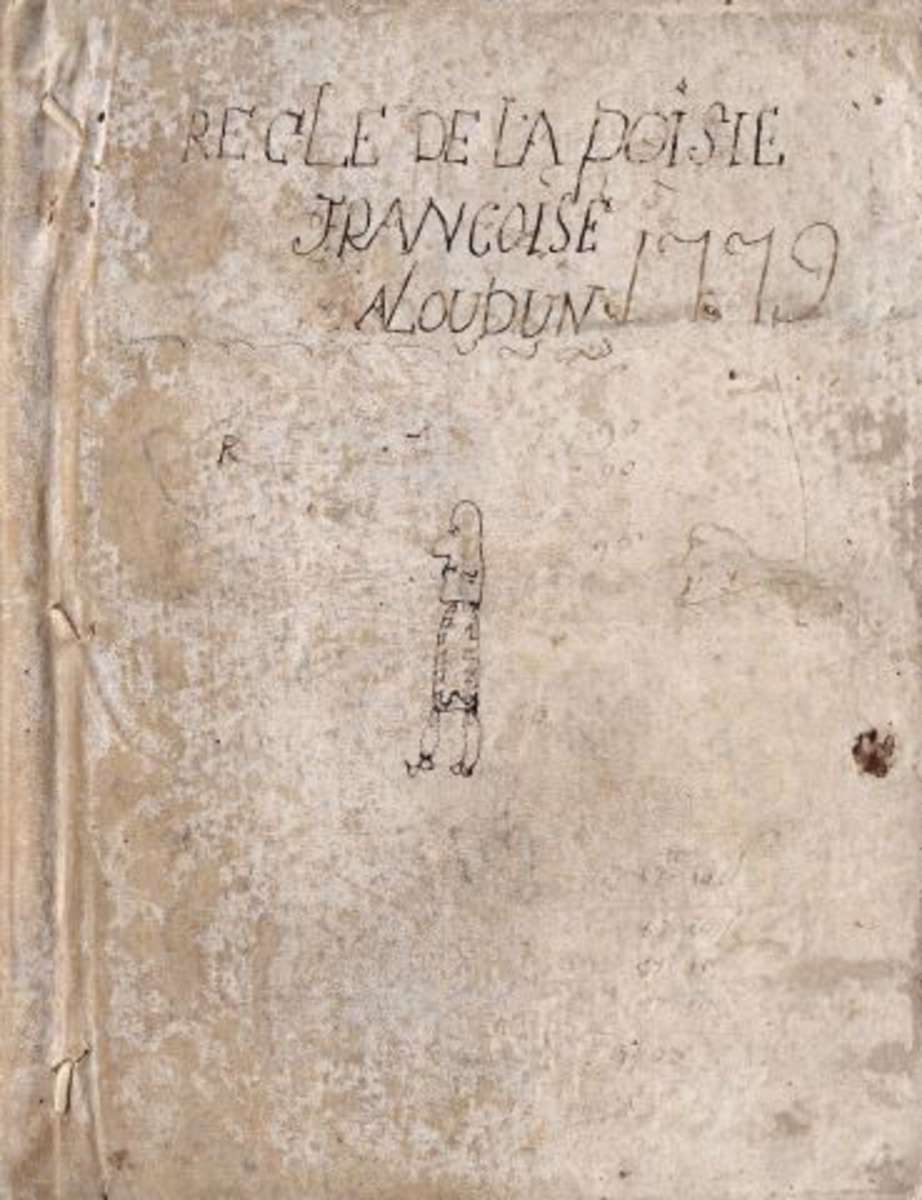 REGLE DE LA POISIE
FRANCOISE
ALOUDUN 1779
R